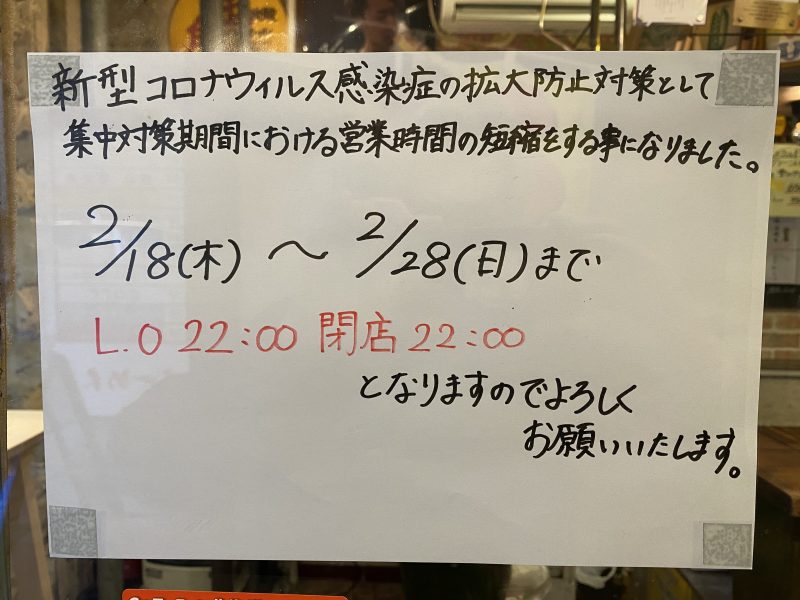 新型コロナウィルス感染症の拡大防止対策として
集中対策期間における営業時間の短縮をする事になりました。
2/18(木) ～ 2/28(日)まで
L.O 22:00 閉店 22:00
となりますのでよろしく
お願いいたします。